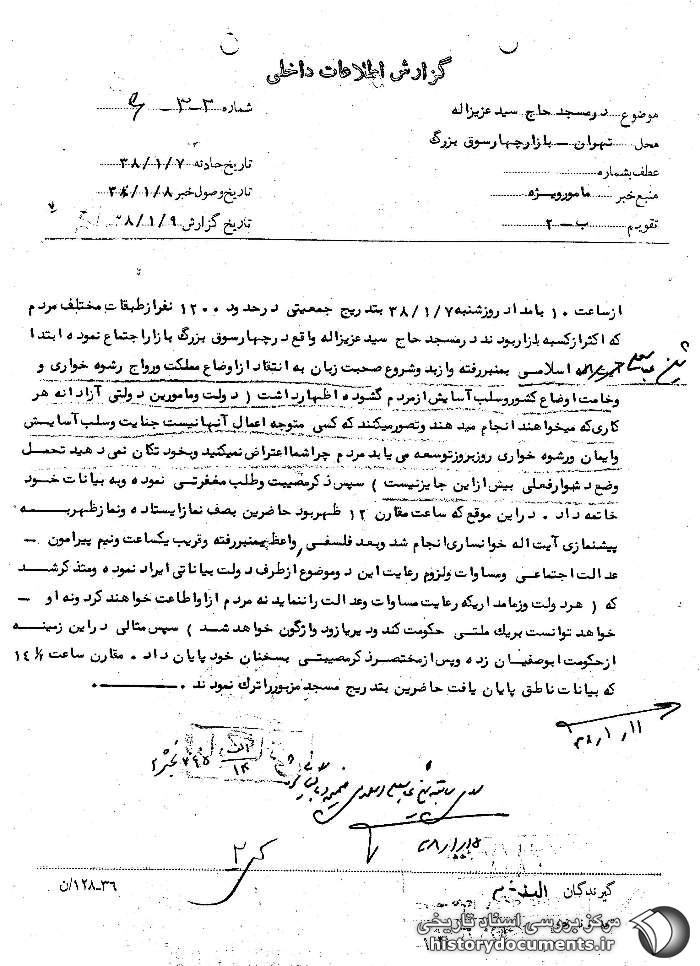 گزارش اطلاعات داخلی
موضوع در مسجد حاج سید عزیزاله
شماره ۳-۳
محل تهران – بازار چهارسوق بزرگ
عطف بشماره
تاریخ حادثه ۳۸/۱/۷
منبع خبر مامور ویژه
تاریخ وصول خبر ۳۸/۱/۸
تقویم ب – ۲
تاریخ گزارش ۳۸/۱/۹
از ساعت ۱۰ بامداد روز شنبه ۳۸/۱/۷ بتدریج جمعیتی در حدود ۱۲۰۰ نفر از طبقات مختلف مردم
که اکثر از کسبه بازار بودند در مسجد حاج سید عزیزاله واقع در چهارسوق بزرگ بازار اجتماع نموده ابتدا
شیخ عباسعلی اسلامی بمنبر رفته و از بدو شروع صحبت زبان به انتقاد از اوضاع مملکت و رواج رشوه خواری و
وخامت اوضاع کشور و سلب آسایش از مردم گشوده اظهار داشت ( دولت و مامورین دولتی آزادانه هر
کاری که میخواهند انجام میدهند و تصور میکنند که کسی متوجه اعمال آنها نیست جنایت و سلب آسایش
و ایمان و رشوه خواری روز بروز توسعه می یابد مردم چرا شما اعتراض نمیکنید و بخود تکان نمی دهید تحمل
وضع دشوار فعلی بیش از این جایز نیست ) سپس ذکر مصیبت و طلب مغفرتی نموده و به بیانات خود
خاتمه داد . در این موقع که ساعت مقارن ۱۲ ظهر بود حاضرین بصف نماز ایستاده و نماز ظهر به
پیشنمازی آیت اله خوانساری انجام شد و بعد فلسفی واعظ بمنبر رفته و قریب یکساعت و نیم پیرامون –
عدالت اجتماعی و مساوات و لزوم رعایت این دو موضوع از طرف دولت بیاناتی ایراد نموده و متذکر شد
که ( هر دولت و زمامداریکه رعایت مساوات و عدالت را ننماید نه مردم از او اطاعت خواهند کرد و نه او –
خواهد توانست بر یک ملتی حکومت کند و دیر یا زود واژگون خواهد شد ) سپس مثالی در این زمینه
از حکومت ابوصفیان زده و پس از مختصر ذکر مصیبتی بسخنان خود پایان داد . مقارن ساعت ۱۴
که بیانات ناطق پایان یافت حاضرین بتدریج مسجد مزبور را ترک نمودند .
۳۸/۱/۱۱
گیرندگان
۳۶-۱۲۸/ن
مرکز بررسی اسناد تاریخی
historydocuments.ir